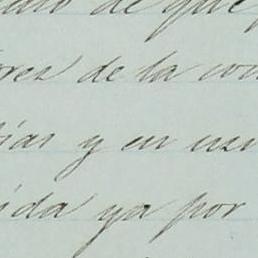 de que
ores de la con
ias y en usu
ida ya por